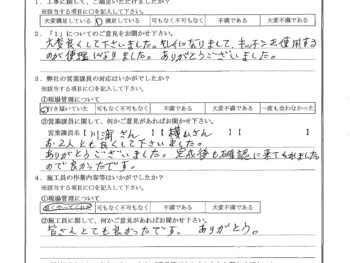 1．工事に関して、ご満足いただけましたか？
※該当する項目に○を記入して下さい。
大変満足している 満足している 可もなく不可もなく 不満である 大変不満である
2．「1」についてのご意見をお聞かせ下さい。
大変良くして下さいました。キレイになりまして、キッチンを使用する
のが便理になりました。ありがとうございました。
3．弊社の営業課員の対応はいかがでしたか？
※該当する項目に○を記入して下さい。
①現場管理について
行き届いていた 可もなく不可もなく 大変不満である 一度も会わなかった
②営業課員に関して、何かご意見があればお聞かせ下さい。
営業課員名【 さん 】【 横山さん 】【
お二人とも良くして下さいました。
ありがとうございました。完成後も確認に来てくれました
ので良かったです。
4．施工員の作業内容等はいかがでしたか？
※該当する項目に○を記入して下さい。
①現場管理について
可もなく不可もなく 不満である 大変不満である
②施工員に関して、何かご意見があればお聞かせ下さい。
皆さんとても良かったです。 ありがとう。